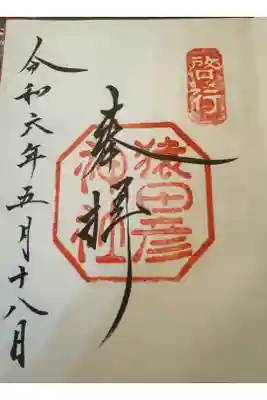 啓行
奉拝
猿田彦
神社
令和六年五月十八日